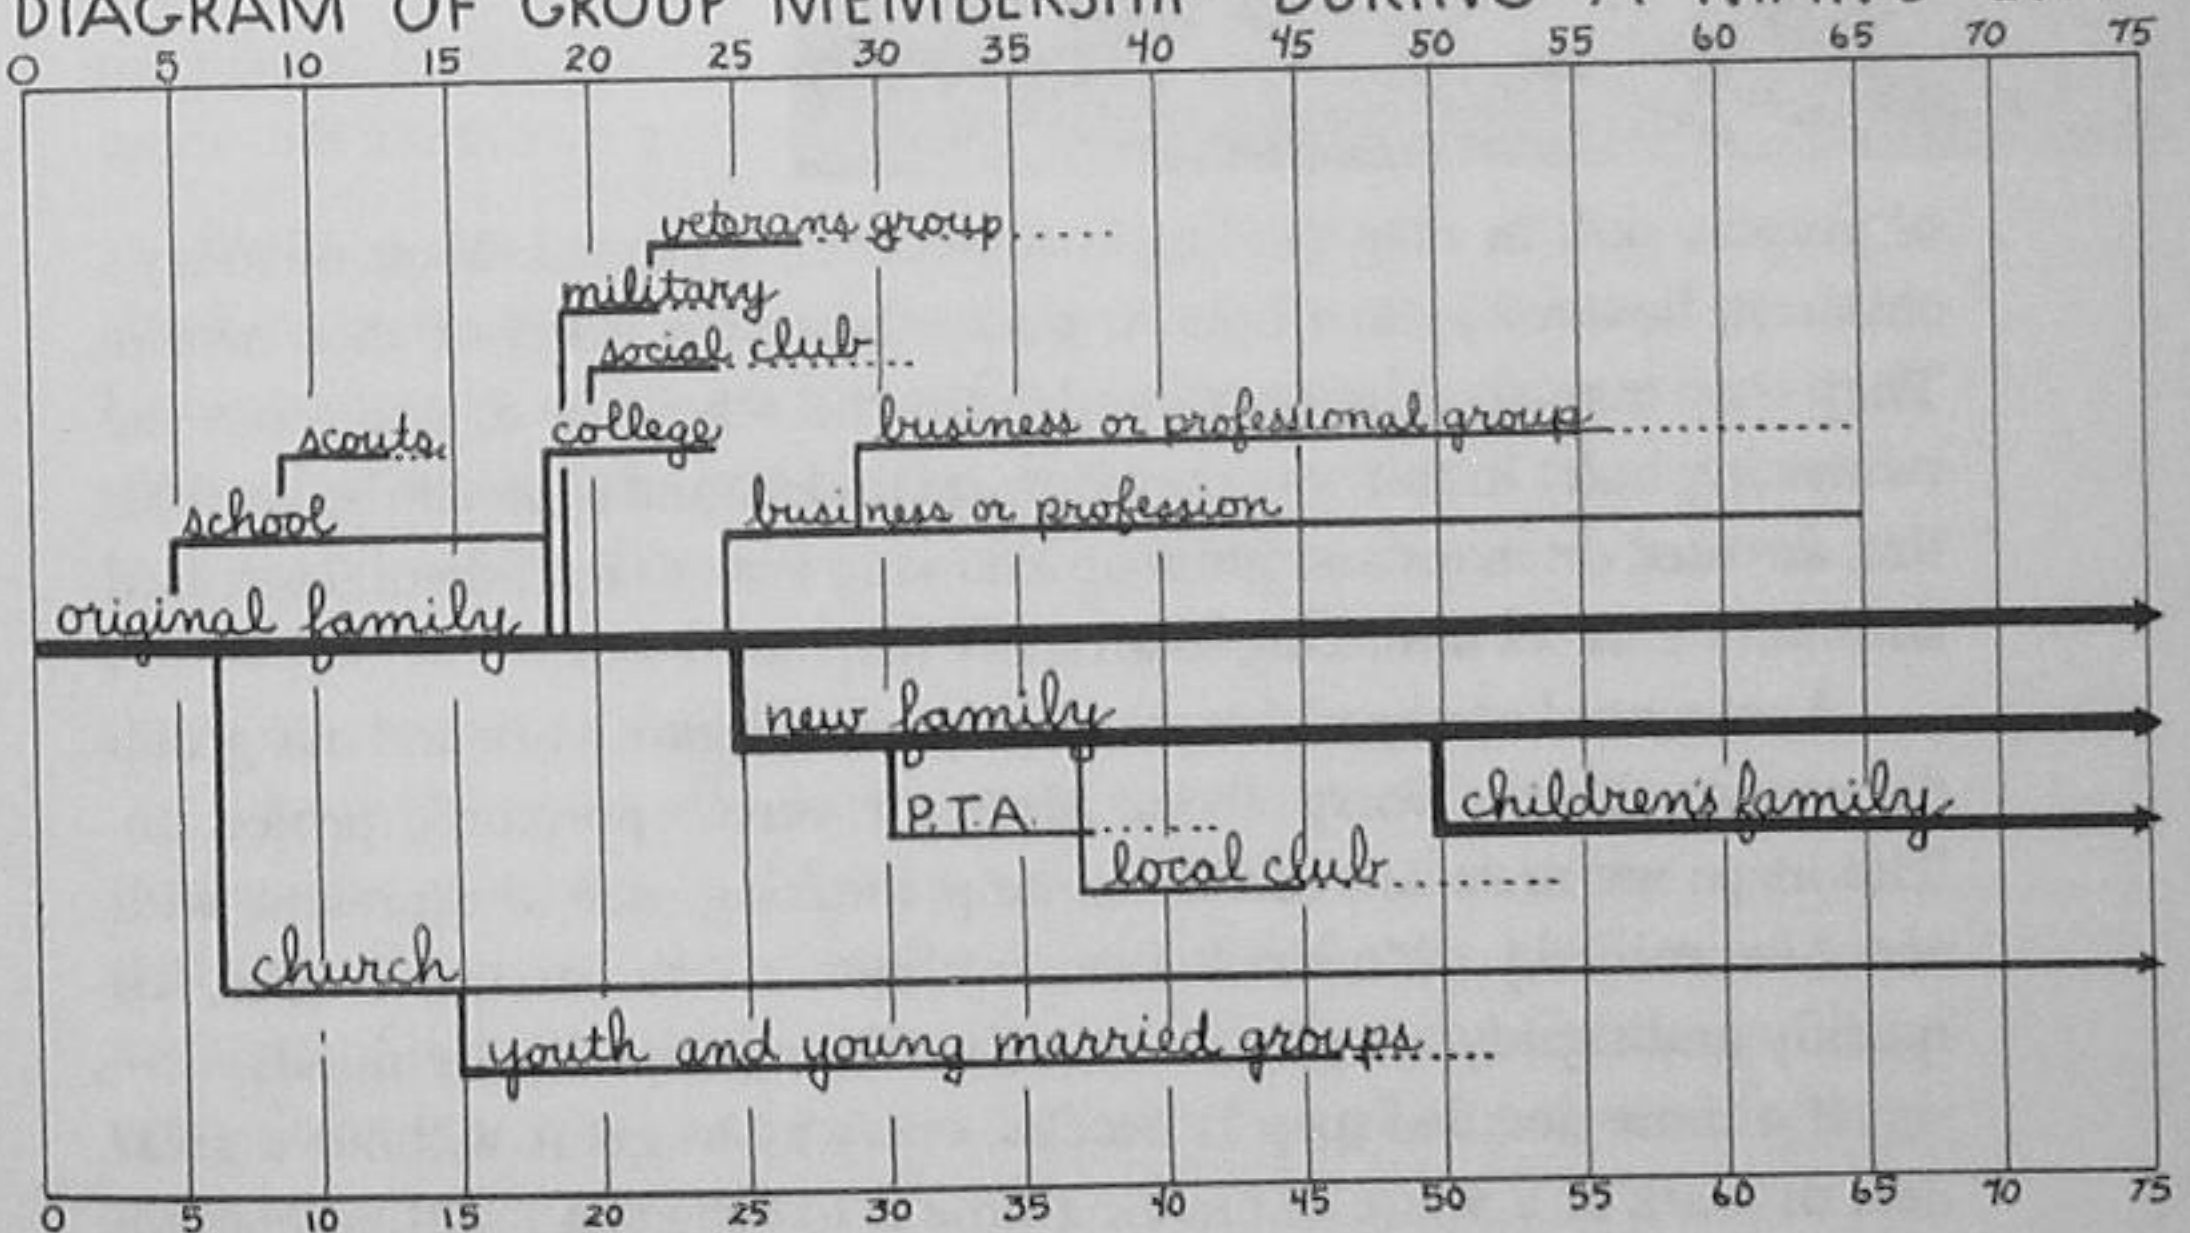 DIAGRAM OF GROUP MEMBERSHIP DURING A
0 5 10 15 20 25 30 35 40 45 50 55 60 65 70 75
veterans group
military
social club
college
scouts
business or professional group
school
business or profession
original family
new family
P.T.A.
children's family
local club
church
youth and young married groups
0 5 10 15 20 25 30 35 40 45 50 55 60 65 70 75